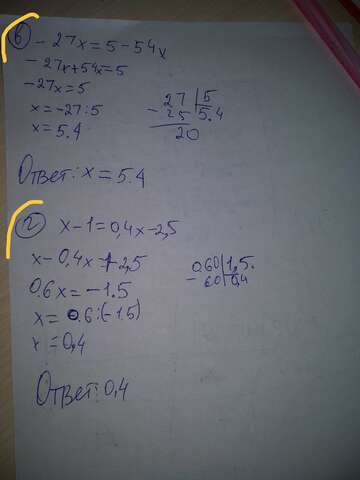 в) -27x=5-54x
-27x+54x=5
-27x=5
x=-27:5
x=5.4
27 | 5
- 25 | 5.4
20
Ответ: x=5.4
г) x-1=0,4x-2,5
0.6x=-1.5
x=0.6:(-1.5)
x=0,4
0.60 | 1,5.
- 60 | 0,4
Ответ: 0,4